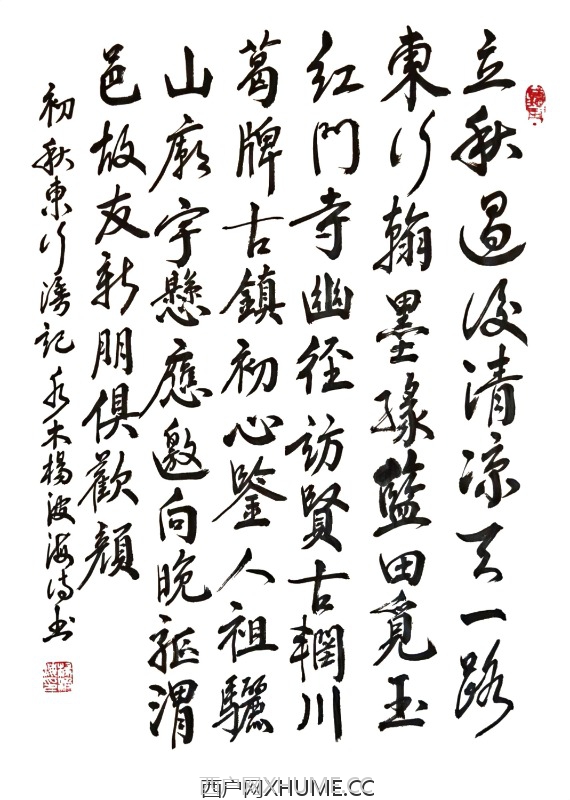 立秋過後清涼天一路
東行翰墨緣藍田覓玉
紅門寺幽徑訪賢古輞川
葛牌古鎮初心鑒人祖驪
山廟宇懸應邀向晚驅渭
邑故友新朋俱歡顏
初秋東行漫記 水木楊波海詩書
西户网XHUME.CC